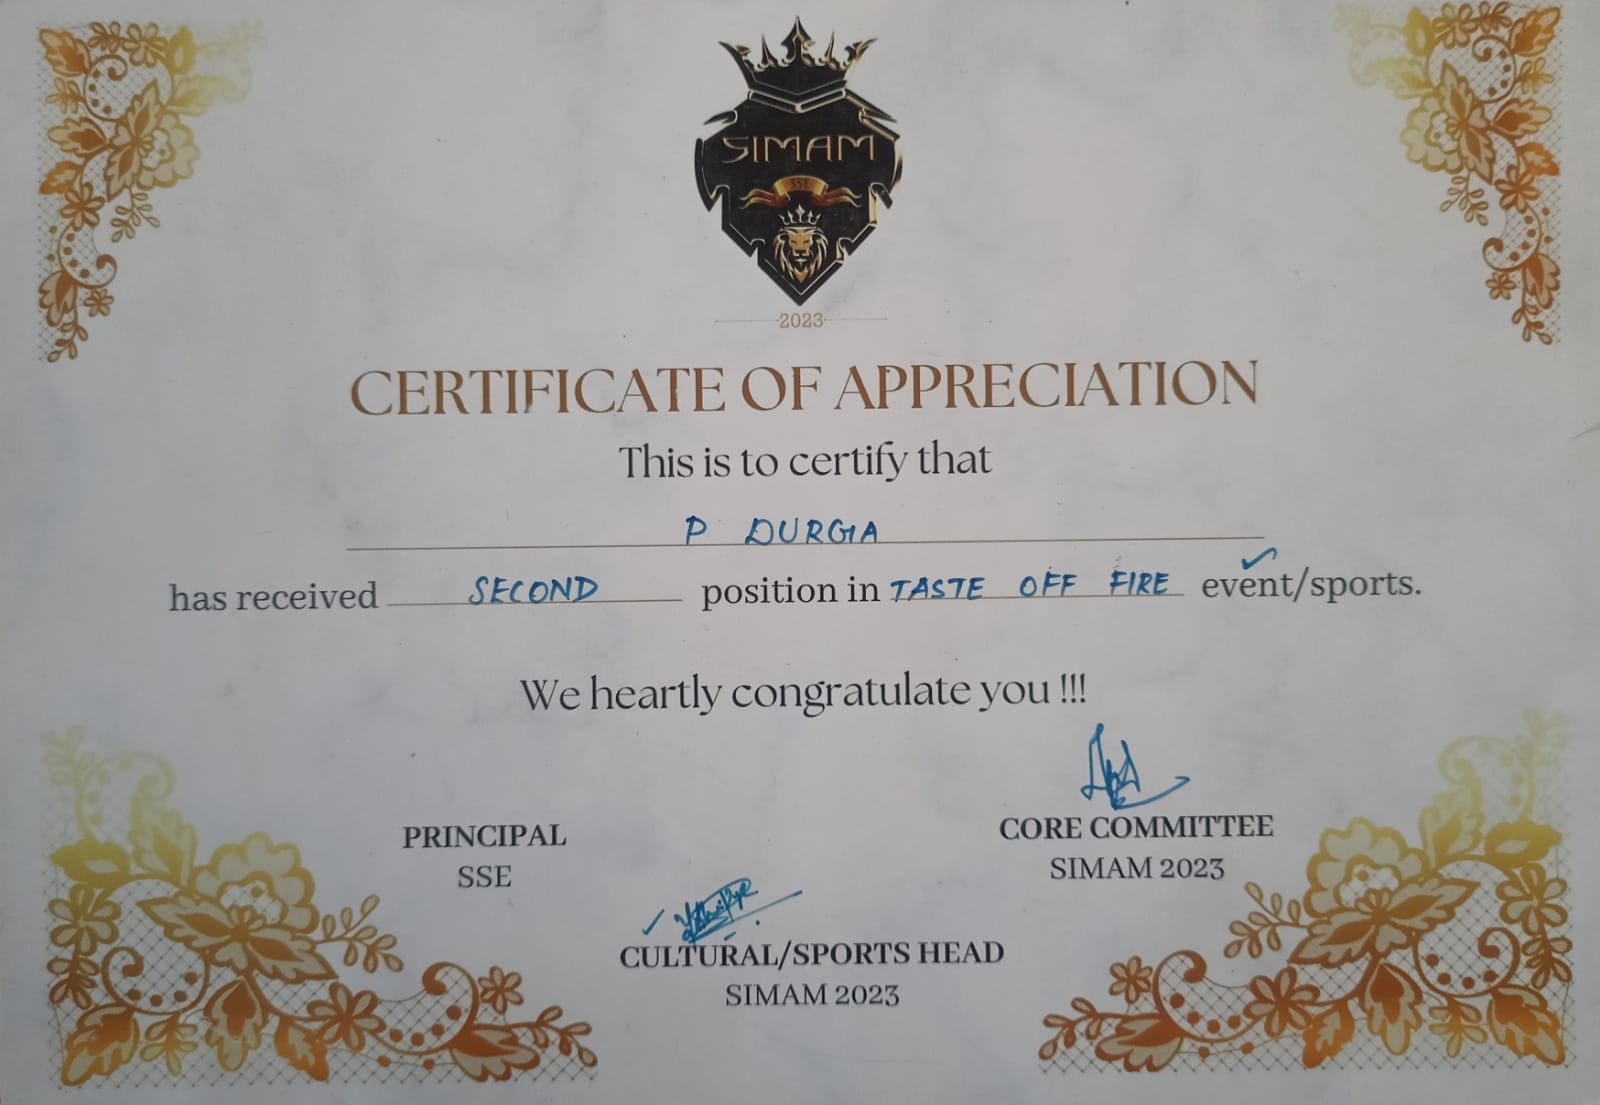 SIMAM
SSE
2023
CERTIFICATE OF APPRECIATION
This is to certify that
P DURGA
has received SECOND position in TASTE OFF FIRE event/sports.
We heartly congratulate you !!!
PRINCIPAL
SSE
CORE COMMITTEE
SIMAM 2023
CULTURAL/SPORTS HEAD
SIMAM 2023